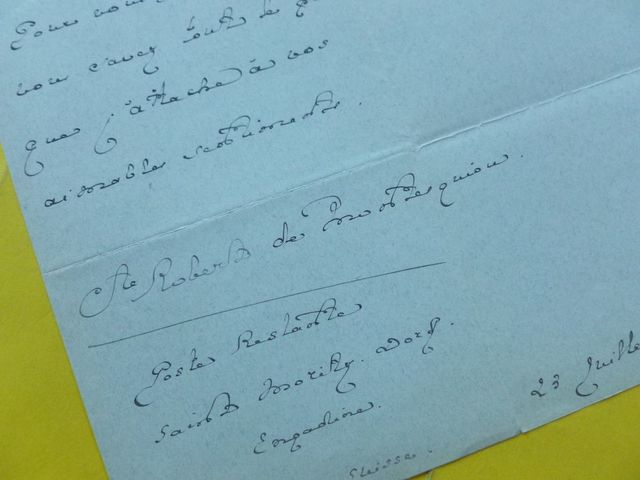 Pour vous
vous savez toute le
que j'attache à vos
aimables sentiments.
Cte Robert de Montesquiou.
Poste Restante
Saint Moritz. Dorf.
Engadine.
Suisse.
23 Juillet